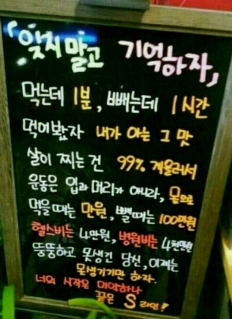 「잊지말고 기억하자」
먹는데 1분, 빼는데 1시간
먹어봤자 내가 아는 그 맛
살이 찌는건 99% 게을러서
운동은 입과 머리가 아니라, 몸으로
먹을때는 만원, 뺄때는 100만원
헬스비는 4만원, 병원비는 4천만원
뚱뚱하고 못생긴 당신, 이제는
못생기기만 하자.
너의 시작은 미약하나
끝은 S라인!